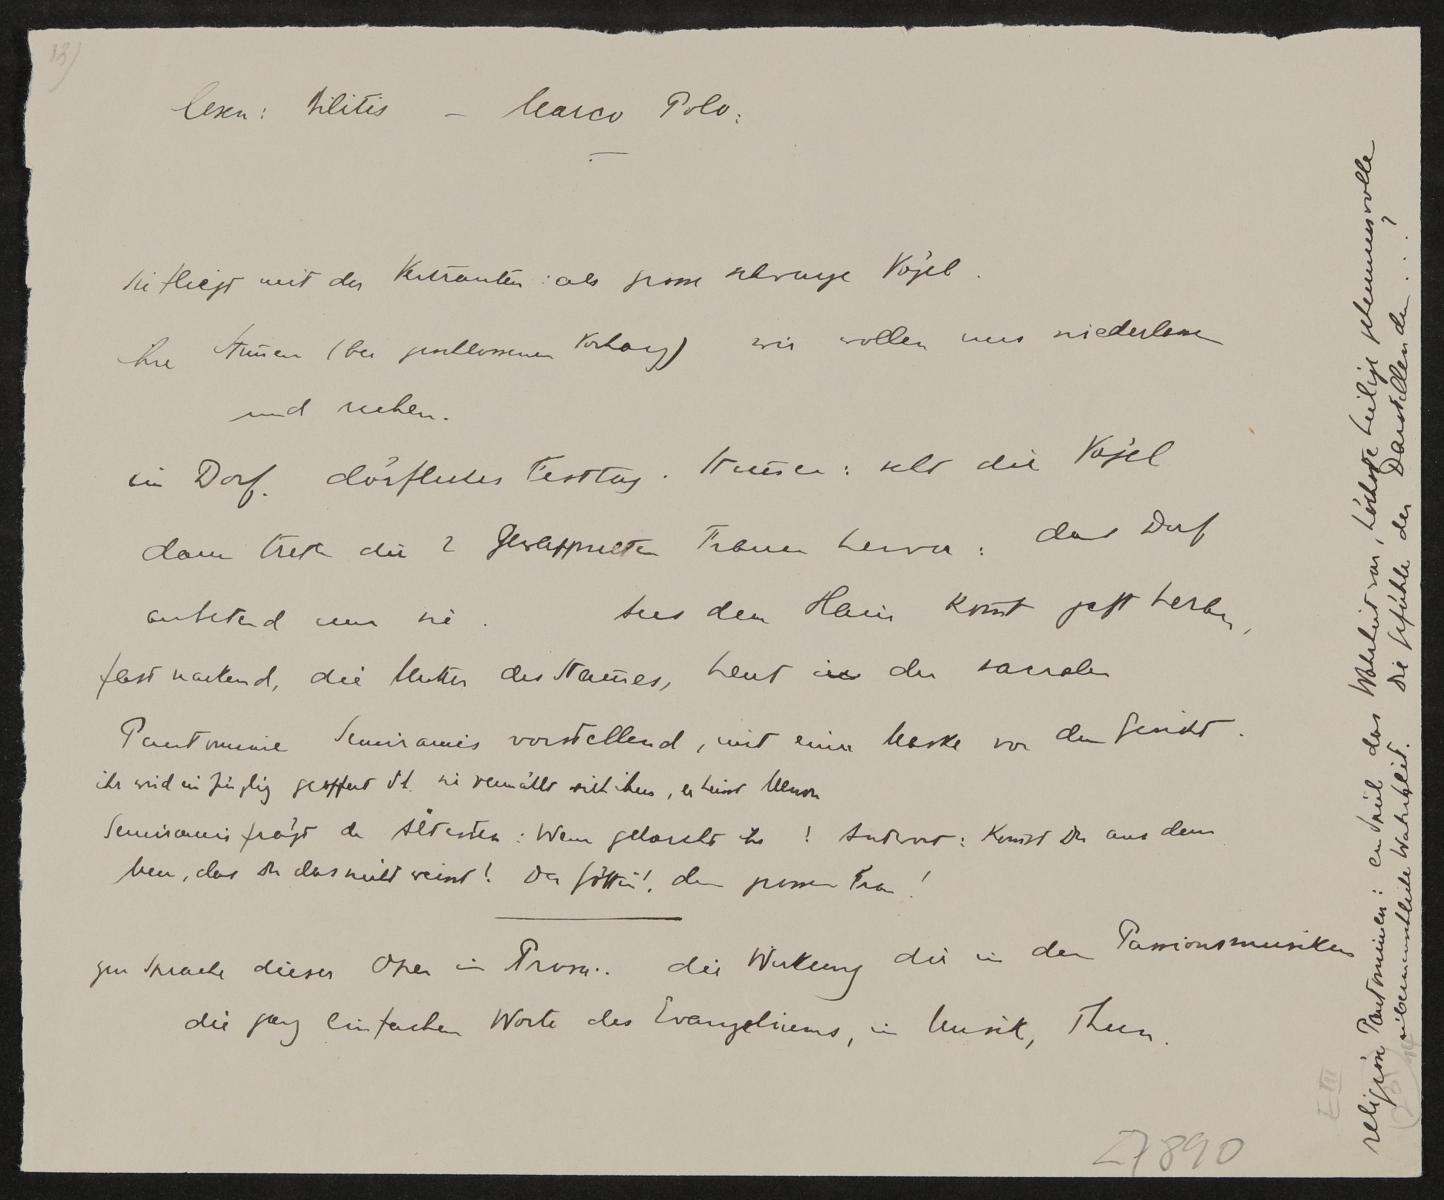 13)
lesen: Bilitis – Marco Polo:
Sie fliegt mit der Vertrauten: als grosse schwarze Vögel.
ihre Stimmen (bei geschlossenem Vorhang) wir wollen uns niederlassen
und ruhen.
im Dorf. dörfliches Festtag. Staunen: seht die Vögel
dann treten die 2 gewappneten Frauen hervor: das Dorf
anbetend um sie. Aus dem Hain kommt herbei,
fast nackend, die Mutter des Ninyas, heut in der sacralen
Pantomime Semiramis vorstellend, mit einer Maske vor dem Gesicht.
ihr wird ein Jüngling geopfert d.h. sie vermählt sich ihm, er heisst
Semiramis frägt die Ältesten: Wem gehorcht ihr! Antwort: Kommst Du aus dem
dass Du das nicht weisst! Der Göttin!, der grossen Frau!
zur Sprache dieser Oper in Prosa.. die Wirkung die in den Passionsmusiken
die ganz einfachen Worte des Evangeliums, in Musik, thun.
religiöse Pantomimen: ein Spiel das Wahrheit war, höchste heilige geheimnisvolle
übermenschliche Wahrheit. Die Gefühle der Darstellenden...?
E III
27890